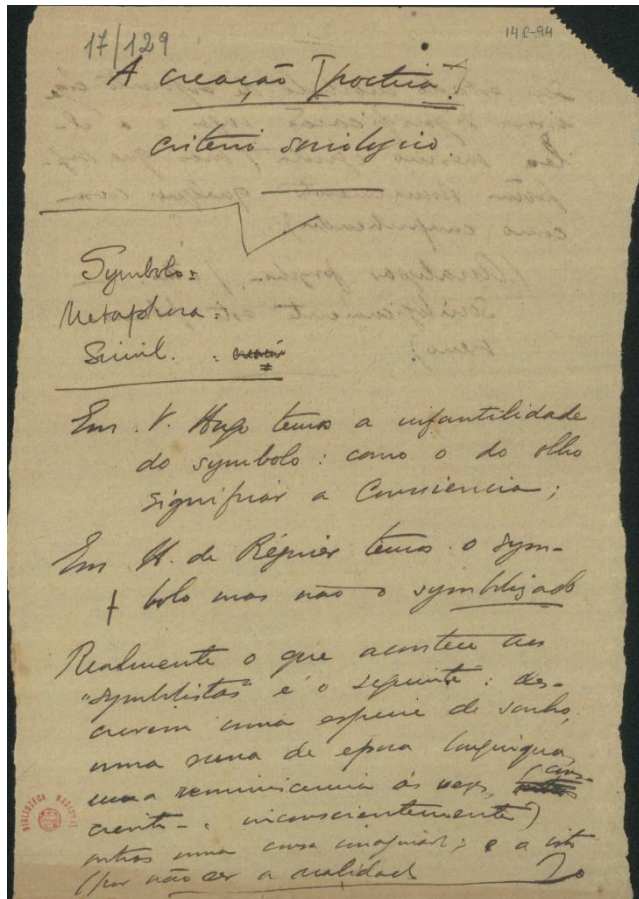 17/129
14C-94
A creação [poetica]
criterio sociologico.
Symbolo:
Metaphora:
Simil. :
Em V. Hugo temos a infantilidade
do symbolo: como o do olho
significar a Consciencia;
Em H. de Régnier temos o sym-
bolo mas não o symbolizado
Realmente o que acontece aos
"symbolistas" é o seguinte: des-
crevem uma especie de sonho,
uma scena de epoca longinqua,
uma reminiscencia ás vezes, (cons-
ciente- inconscientemente)
outras uma cousa imaginaria; e a isto
(por não ser a realidade
BIBLIOTECA NACIONAL